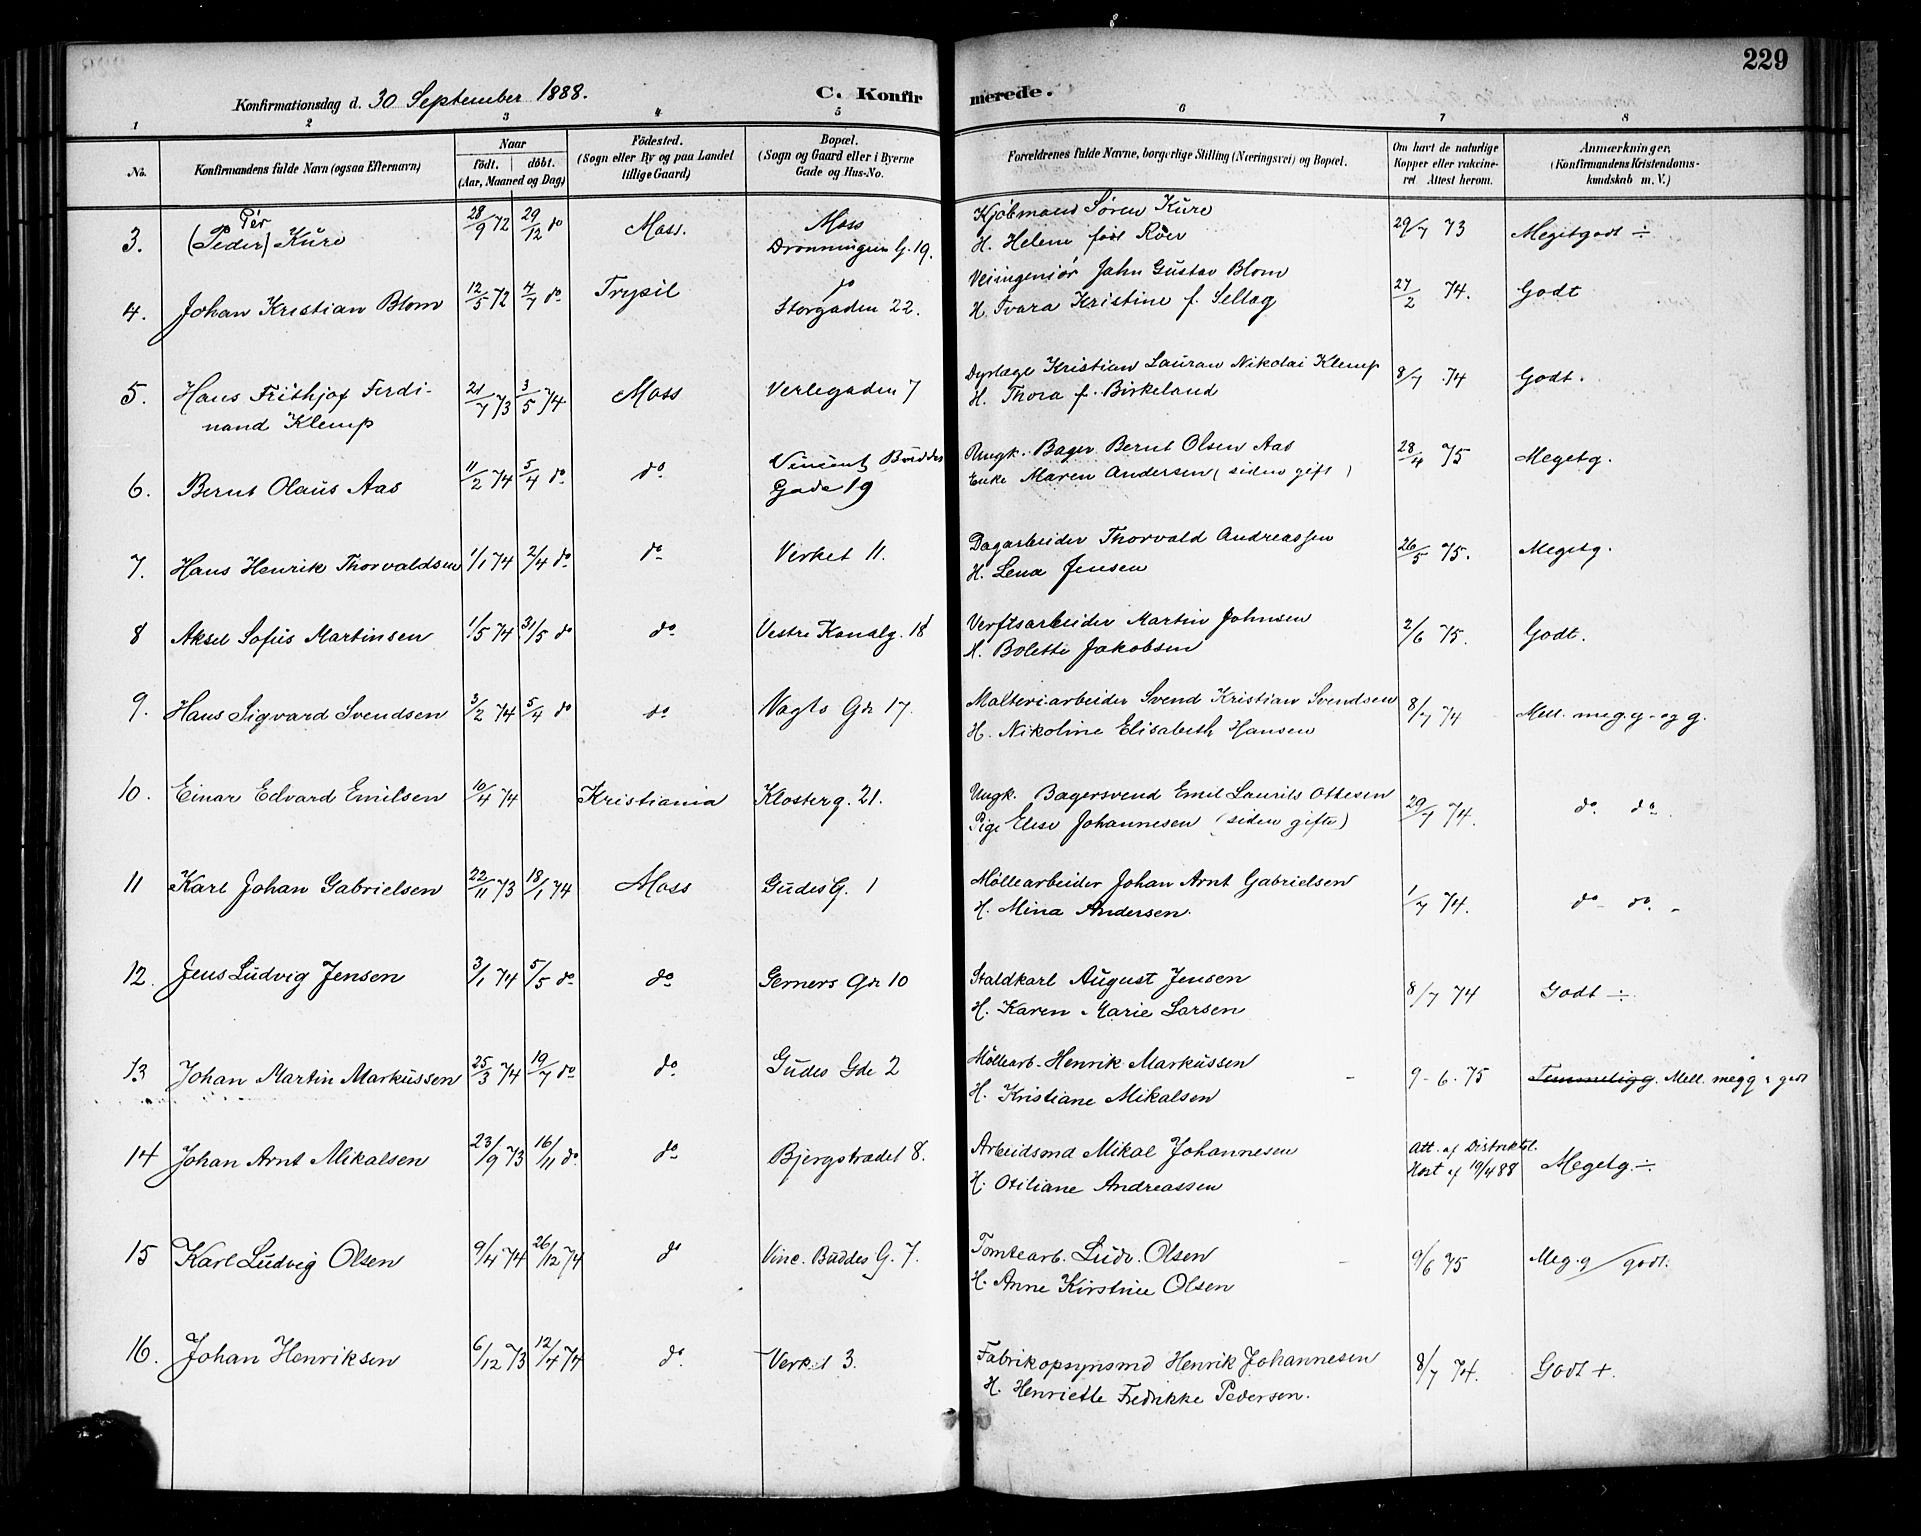 229
Konfirmationsdag d. 30 September 1888. C. Konfirmerede.
1 2 3 4 5 6 7 8
No. Konfirmandens fulde Navn (ogsaa Efternavn) Naar födt. döbt. (Aar, Maaned og Dag) Födested. (Sogn eller By og paa Landet tillige Gaard) Bopæl. (Sogn og Gaard eller i Byerne Gade og Hus-No. Forældrenes fulde Navne, borgerlige Stilling (Næringsvei) og Bopæl. Om havt de naturlige Kopper eller vakcineret Attest herom. Anmærkninger, (Konfirmandens Kristendomskundskab m. V.)
Per Moss Kjøbmand Søren Kure
3. (Peder) Kure 28/9 72 29/12 do Moss. Dronningens G. 19. H. Helene født Röer 29/7 73 Megetgodt ÷
do Veiingeniør Jahn Gustav Blom
4. Johan Kristian Blom 12/5 72 4/7 do Trysil Storgaden 22. H. Tvara Kristine f. Sellæg 27/2 74. Godt
5. Hans Frithjof Ferdi- 21/7 73 3/5 74 Moss Verlegaden 7 Dyrlæge Kristian Lauran Nikolai Klemp 8/7 74 Godt.
nand Klemp H. Thora f. Birkeland
Vincent Buddes Ungk. Bager Bernt Olsen Aas
6. Bernt Olaus Aas 11/2 74 5/4 do do Gade 19 Enke Maren Andersen (siden gift) 28/4 75 Megetg.
7. Hans Henrik Thorvaldsen 1/1 74 2/4 do do Verket 11. Dagarbeider Thorvald Andreassen 26/5 75. Megetg.
H. Lena Jensen
8 Aksel Sofus Martinsen 1/5 74 31/5 do do Vestre Kanalg. 18 Verftsarbeider Martin Johnsen 2/6 75. Godt.
H. Bolette Jakobsen
9. Hans Sigvard Svendsen 3/2 74 5/4 do do Vogts Gd 17. Malteriarbeider Svend Kristian Svendsen 8/7 74 Mell. meg. g. og g.
H. Nikoline Elisabeth Hansen
10. Einar Edvard Emilsen 10/4 74 Kristiania Klosterg. 21. Ungk. Bagersvend Emil Laurits Ottesen 29/7 74. do do.
Pige Elise Johannesen (siden gifte)
11 Karl Johan Gabrielsen 22/11 73 18/1 74 Moss Gudes G. 1 Möllearbeider Johan Arnt Gabrielsen 1/7 74. do - do. -
H. Mina Andersen.
12. Jens Ludvig Jensen 3/1 74 5/5 do do Gerners Gd 10 Staldkarl August Jensen 8/7 74 Godt ÷
H. Karen Marie Larsen
13 Johan Martin Markussen 25/3 74 19/7 do do Gudes Gde 2 Möllearb. Henrik Markussen 9-6.75 Temmelig g. Mell. meg g & godt
H. Kristiane Mikalsen
14 Johan Arnt Mikalsen 23/9 73 16/11 do do Bjergstrædet 8. Arbeidsmd Mikal Johannesen Att. af Distriktsl.
H. Otiliane Andreassen Hort af 19/4 88 Megetg. ÷
15 Karl Ludvig Olsen 9/4 74 26/12 74 do Vinc. Buddes G. 7. Tomtearb. Ludv. Olsen 9/6 75 Meg. g / godt.
H. Anne Kirstine Olsen
16. Johan Henriksen 6/12 73 12/4 74 do Verket 3. Fabrikopsynsmd Henrik Johannesen 8/7 74. Godt +.
H. Henriette Fredrikke Pedersen.